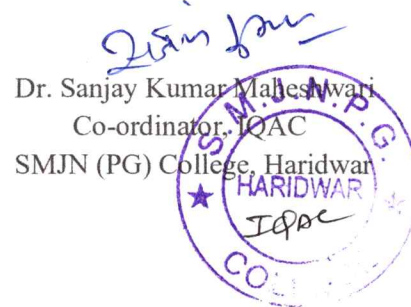 Dr. Sanjay Kumar Maheshwari
Co-ordinator, IQAC
SMJN (PG) College, Haridwar
S.M.J.N.P.G.
HARIDWAR
IQAC